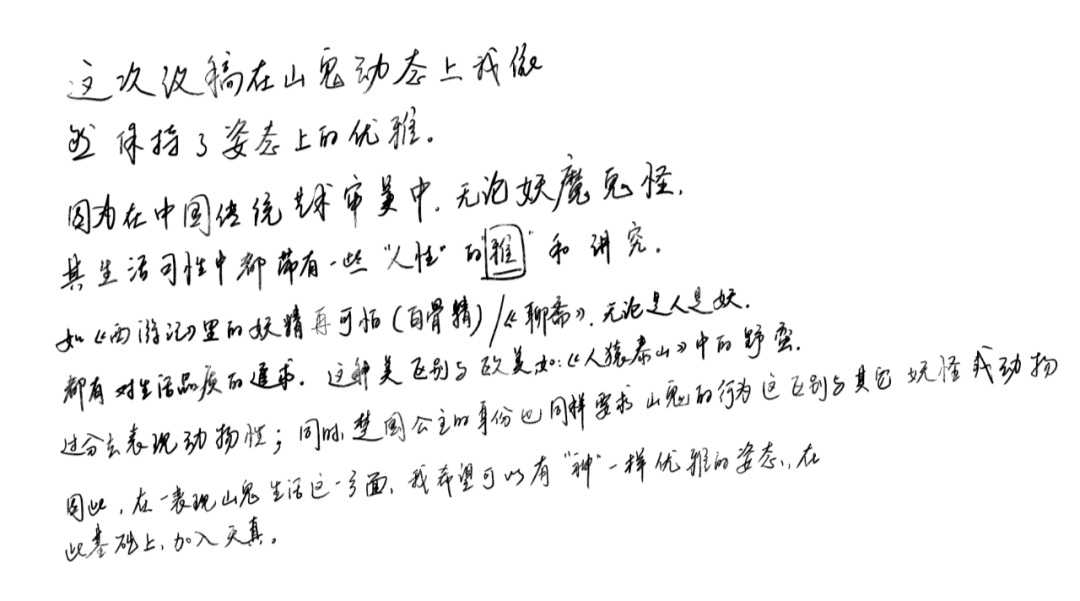 这次改稿在山鬼动态上我依
然保持了姿态上的优雅。
因为在中国传统艺术审美中,无论妖魔鬼怪,
其生活习性中都带有一些“人性”的“雅”和讲究。
如《西游记》里的妖精再可怕(白骨精)/《聊斋》,无论是人是妖,
都有对生活品质的追求。这种美区别与欧美如:《人猿泰山》中的野蛮,
过分去表现动物性;同时,楚国公主的身份也同样要求山鬼的行为这区别与其它妖怪或动物
因此,在表现山鬼生活这一方面,我希望可以有“神”一样优雅的姿态,在
此基础上,加入天真。